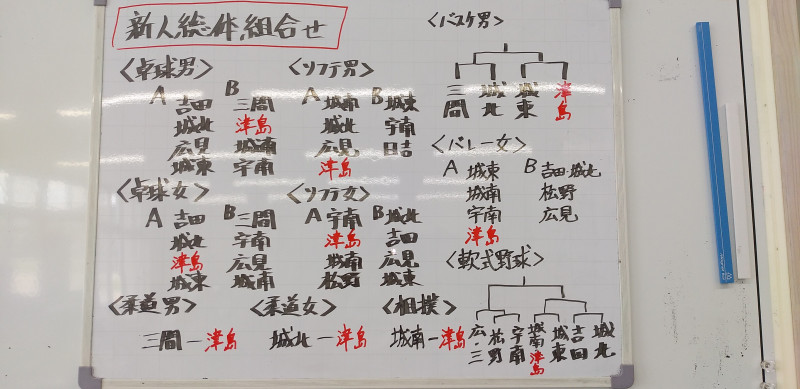 新人総体組合せ
<卓球男>
A 吉田 城北 広見 城東
B 三間 津島 城南 宇南
<ソフテ男>
A 城南 城北 広見 津島
B 城東 宇南 日吉
<バスケ男>
三間 城北 城東 津島
<バレー女>
A 城東 城南 宇南 津島
B 吉田・城北 松野 広見
<卓球女>
A 吉田 城北 津島 城東
B 三間 宇南 広見 城南
<ソフテ女>
A 宇南 津島 城南 松野
B 城北 吉田 広見 城東
<軟式野球>
広・三 松野 宇南 城南津島 城東 吉田 城北
<柔道男>
三間ー津島
<柔道女>
城北ー津島
<相撲>
城南ー津島